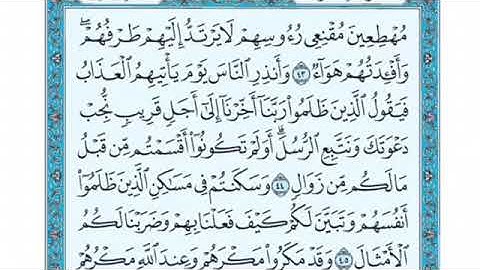 مُهْطِعِينَ مُقْنِعِي رُءُوسِهِمْ لَا يَرْتَدُّ إِلَيْهِمْ طَرْفُهُمْ ۖ
وَأَفْـِٔدَتُهُمْ هَوَآءٌ ٤٣ وَأَنذِرِ النَّاسَ يَوْمَ يَأْتِيهِمُ الْعَذَابُ
فَيَقُولُ الَّذِينَ ظَلَمُوا۟ رَبَّنَآ أَخِّرْنَآ إِلَىٰٓ أَجَلٍ قَرِيبٍ نُّجِبْ
دَعْوَتَكَ وَنَتَّبِعِ الرُّسُلَ ۗ أَوَلَمْ تَكُونُوٓا۟ أَقْسَمْتُم مِّن قَبْلُ
مَا لَكُم مِّن زَوَالٍ ٤٤ وَسَكَنتُمْ فِي مَسَٰكِنِ الَّذِينَ ظَلَمُوٓا۟
أَنفُسَهُمْ وَتَبَيَّنَ لَكُمْ كَيْفَ فَعَلْنَا بِهِمْ وَضَرَبْنَا لَكُمُ
الْأَمْثَالَ ٤٥ وَقَدْ مَكَرُوا۟ مَكْرَهُمْ وَعِندَ اللَّهِ مَكْرُهُمْ